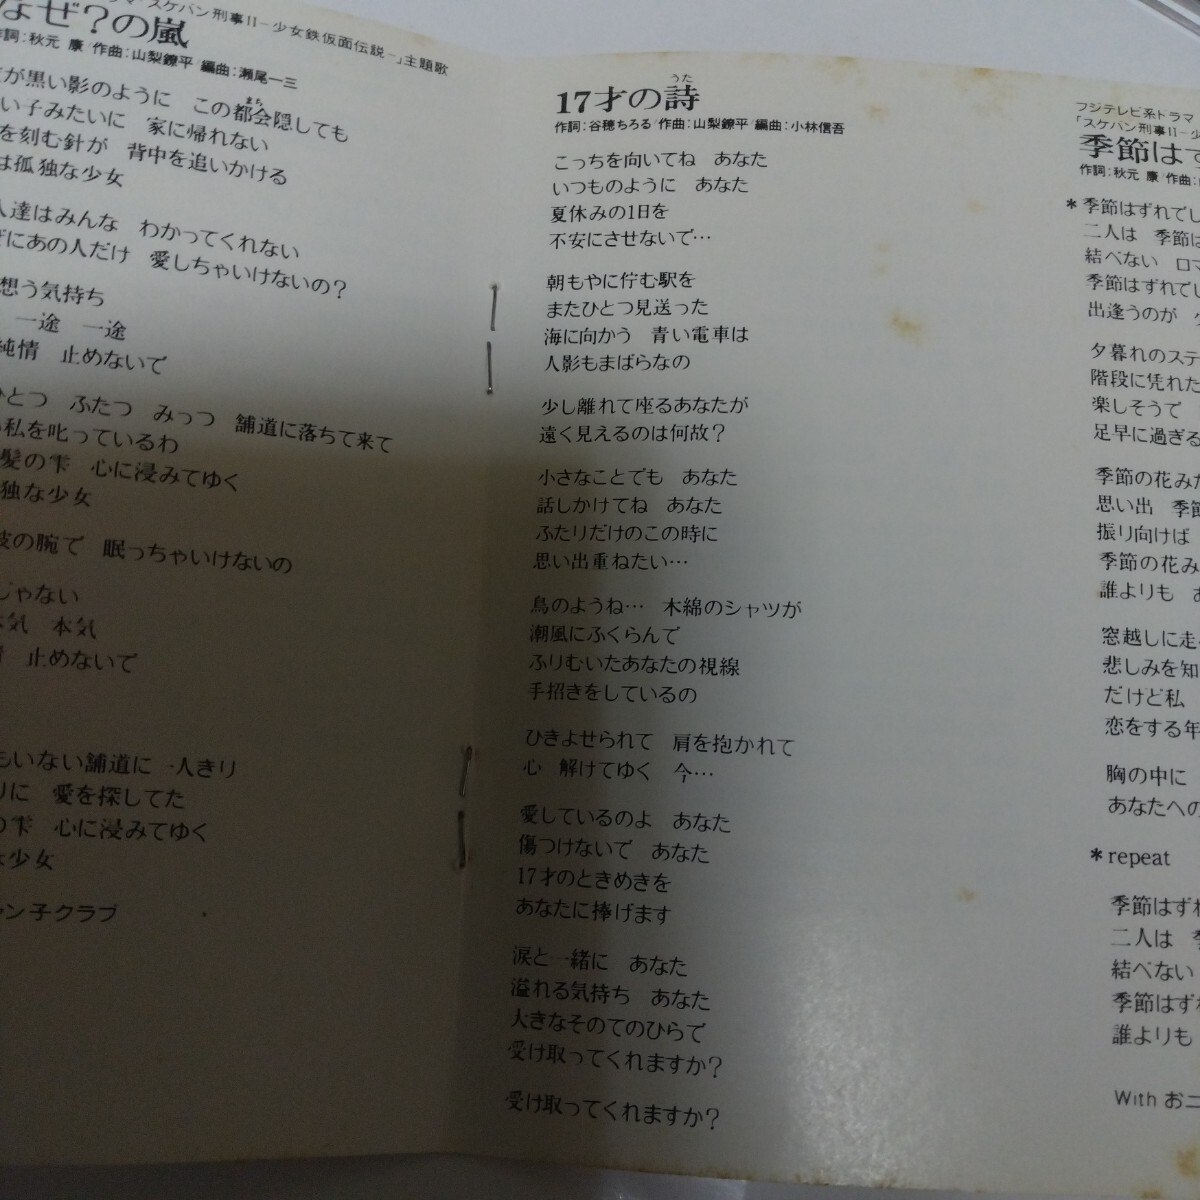 マ「スケバン刑事II−少女鉄仮面伝説−」主題歌
なぜ?の嵐
作詞:秋元 康/作曲:山梨鐐平/編曲:瀬尾一三
が黒い影のように この都会隠しても
まち
い子みたいに 家に帰れない
を刻む針が 背中を追いかける
は孤独な少女
人達はみんな わかってくれない
ぜにあの人だけ 愛しちゃいけないの?
想う気持ち
一途 一途
純情 止めないで
ひとつ ふたつ みっつ 舗道に落ちて来て
私を叱っているわ
髪の雫 心に浸みてゆく
独な少女
の腕で 眠っちゃいけないの
じゃない
本気 本気
止めないで
もいない舗道に 一人きり
りに 愛を探してた
の雫 心に浸みてゆく
な少女
ャン子クラブ
うた
17才の詩
作詞:谷穂ちろる/作曲:山梨鐐平/編曲:小林信吾
こっちを向いてね あなた
いつものように あなた
夏休みの1日を
不安にさせないで…
朝もやに佇む駅を
またひとつ見送った
海に向かう 青い電車は
人影もまばらなの
少し離れて座るあなたが
遠く見えるのは何故?
小さなことでも あなた
話しかけてね あなた
ふたりだけのこの時に
思い出重ねたい…
鳥のようね… 木綿のシャツが
潮風にふくらんで
ふりむいたあなたの視線
手招きをしているの
ひきよせられて 肩を抱かれて
心 解けてゆく 今…
愛しているのよ あなた
傷つけないで あなた
17才のときめきを
あなたに捧げます
涙と一緒に あなた
溢れる気持ち あなた
大きなそのてのひらで
受け取ってくれますか?
受け取ってくれますか?
フジテレビ系ドラマ
「スケバン刑事II−少
季節はず
作詞:秋元 康/作曲:
*季節はずれでし
二人は 季節は
結べない ロマ
季節はずれでし
出逢うのが
夕暮れのステ
階段に凭れた
楽しそうで
足早に過ぎる
季節の花みた
思い出 季節
振り向けば
季節の花み
誰よりも あ
窓越しに走
悲しみを知
だけど私
恋をする年
胸の中に
あなたへの
*repeat
季節はずれ
二人は 季
結べない
季節はずれ
誰よりも
With おニ